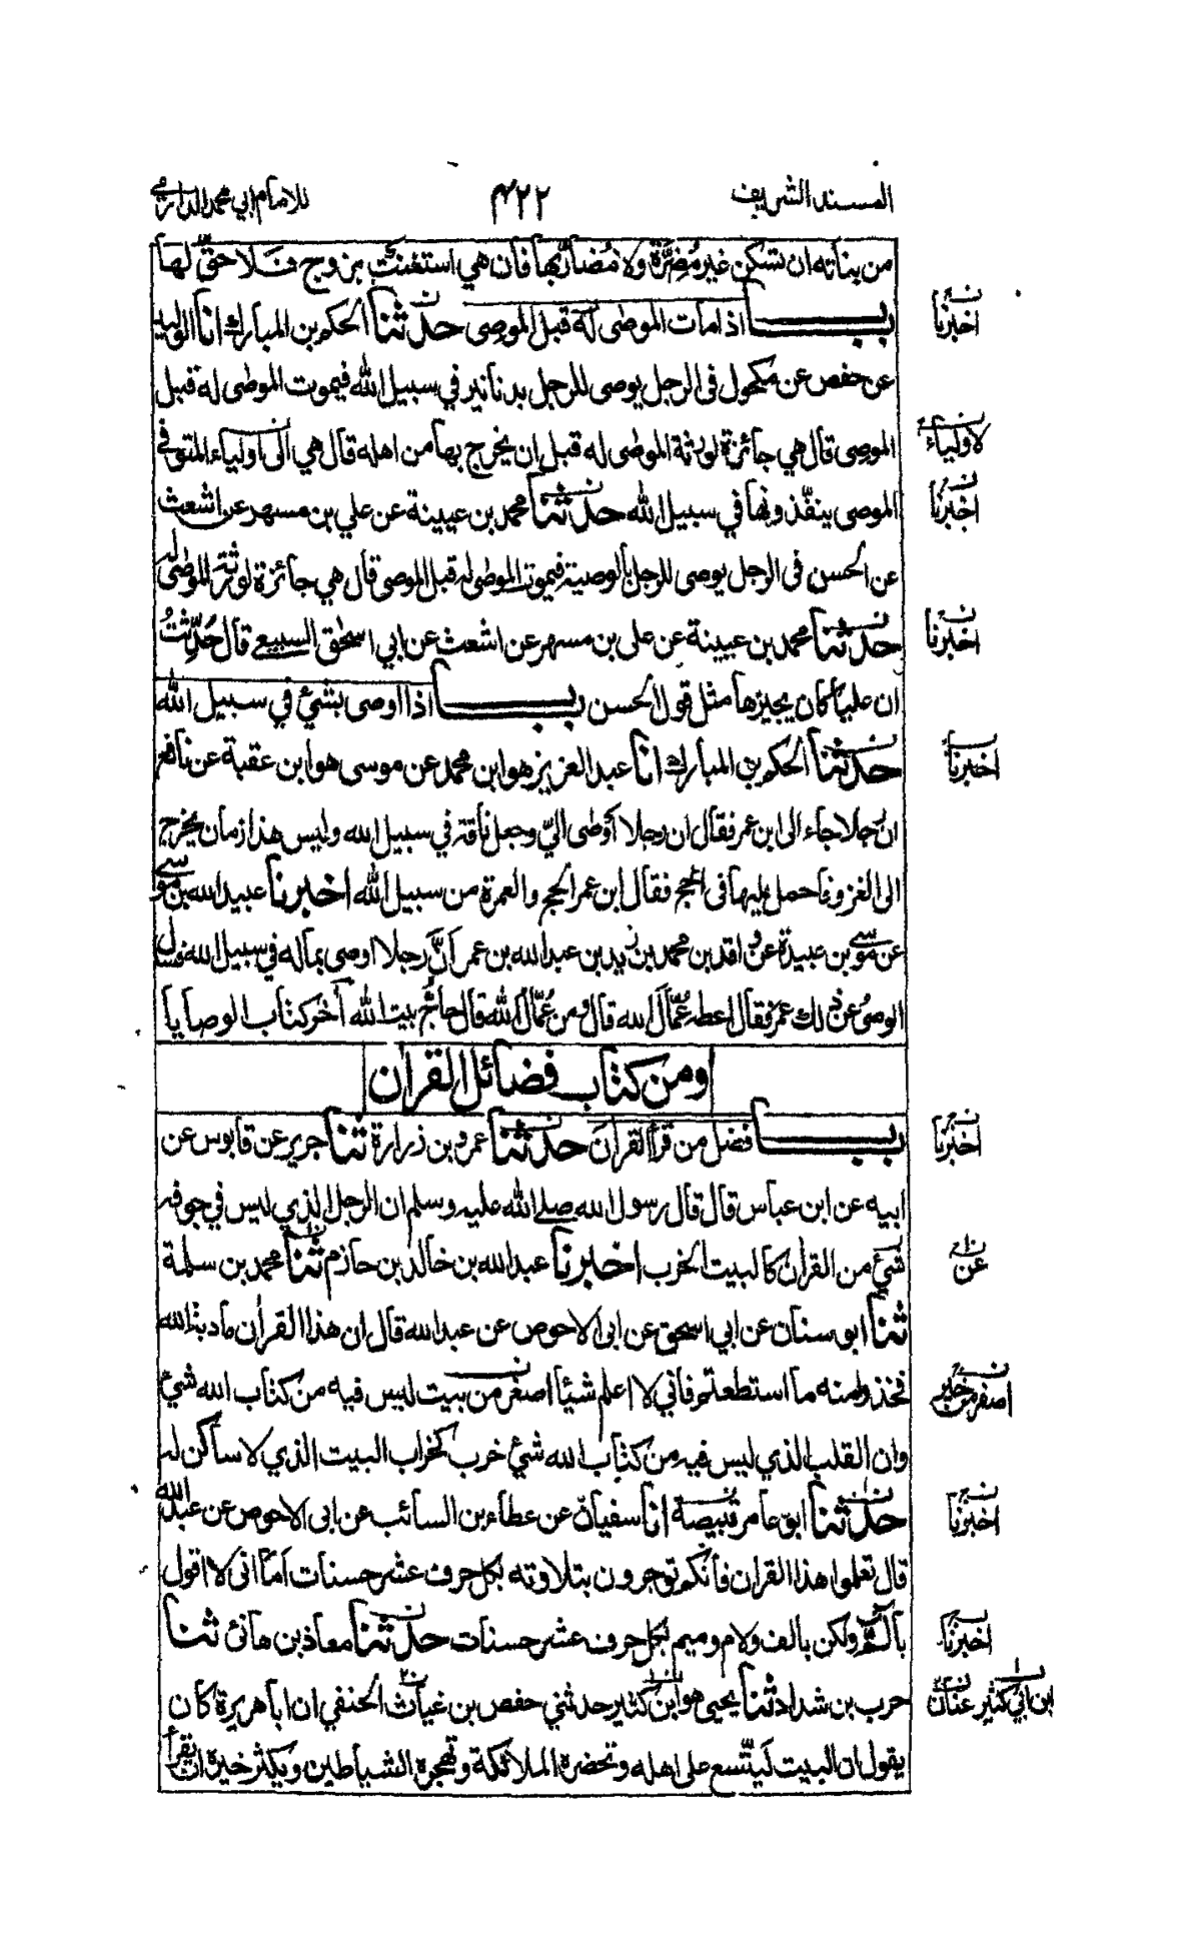 المسند الشريف ٤٢٢ للامام ابي محمد الدارمي
من بناته ان تسكن غير مُضِرَّة ولا مُضارٍّ بها فان هي استغنت بزوج فلا حقّ لها
بــاب اذا مات الموصٰى له قبل الموصِى حدثنا الحكم بن المبارك انا الوليد
اخبرنا
عن حفص عن مكحول فى الرجل يوصى للرجل بدنانير في سبيل الله فيموت الموصٰى له قبل
الموصِى قال هي جائزة لورثة الموصٰى له قبل ان يخرج بها من اهله قال هي الٰى اولياء المتوفى
لاولياء
الموصى ينفّذونها في سبيل الله حدثنا محمد بن عيينة عن علي بن مسهر عن اشعث
اخبرنا
عن الحسن فى الرجل يوصى للرجل بالوصية فيموت الموصٰى له قبل الموصى قال هي جائزة لورثة الموصٰى له
حدثنا محمد بن عيينة عن على بن مسهر عن اشعث عن ابي اسحٰق السبيعي قال حُدِّثتُ
اخبرنا
ان عليا كان يجيزها مثل قول الحسن بــاب اذا اوصى بشئ في سبيل الله
حدثنا الحكم بن المبارك انا عبد العزيز هو ابن محمد عن موسى هو ابن عقبة عن نافع
اخبرنا
ان رجلا جاء الى ابن عمر فقال ان رجلا اوصٰى اليّ وجعل ناقة في سبيل الله وليس هذا زمان يخرج
الى الغزو فاحمل عليها فى الحج فقال ابن عمر الحج والعمرة من سبيل الله اخبرنا عبيد الله بن موسى
عن موسى بن عبيدة عن واقد بن محمد بن زيد بن عبد الله بن عمر انَّ رجلا اوصى بماله في سبيل الله فسئل
الوصى عن ذلك عمر فقال اعطه عُمّال الله قال ومن عُمّال الله قال حاجّ بيت الله آخر كتاب الوصايا
ومن كتاب فضائل القرآن
بــاب فضل من قرأ القرآن حدثنا عمرو بن زرارة ثنا جرير عن قابوس عن
اخبرنا
ابيه عن ابن عباس قال قال رسول الله صلى الله عليه وسلم ان الرجل الذي ليس في جوفه
شئ من القرآن كالبيت الخرب اخبرنا عبد الله بن خالد بن حازم ثنا محمد بن سلمة
عن
ثنا ابو سنان عن ابي اسحق عن ابى الاحوص عن عبد الله قال ان هذا القرآن مادبة الله
فخذوا منه ما استطعتم فاني لا اعلم شيأ اصغر من بيت ليس فيه من كتاب الله شئ
اصفر من خير
وان القلب الذي ليس فيه من كتاب الله شئ خرب كخراب البيت الذي لا ساكن له
حدثنا ابو عامر قبيصة انا سفيان عن عطاء بن السائب عن ابى الاحوص عن عبد الله
اخبرنا
قال تعلموا هذا القرآن فانكم توجرون بتلاوته بكل حرف عشر حسنات اما انى لا اقول
بالٓمٓ ولكن بالف ولام وميم بكل حرف عشر حسنات حدثنا معاذ بن هانئ ثنا
اخبرنا
حرب بن شداد ثنا يحيى هو ابن كثير حدثني حفص بن غياث الحنفي ان ابا هريرة كان
ابن ابي كثير عنان
يقول ان البيت لَيتَّسع على اهله وتحضره الملائكة وتهجره الشياطين ويكثر خيره ان يقرأ